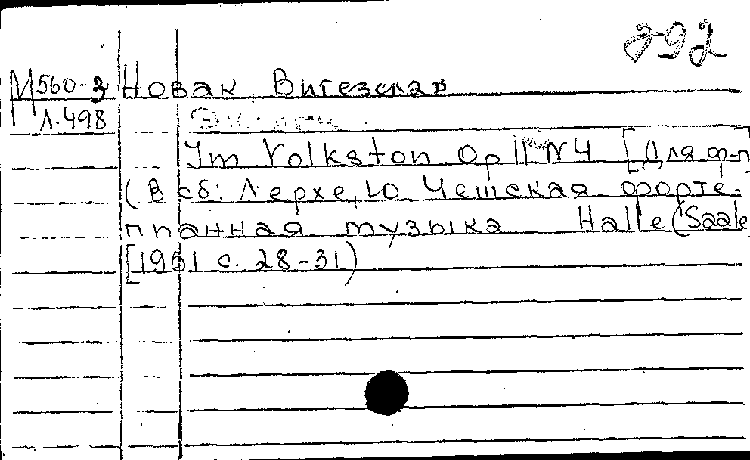 292
М560-3 Новак Витезслав
Л.498
Im Volkston Op 11 N4 [Для ф-п
(В сб: Лерхе, Ю. Чешская форте-
пианная музыка Halle (Saale
[1961 с. 28-31)